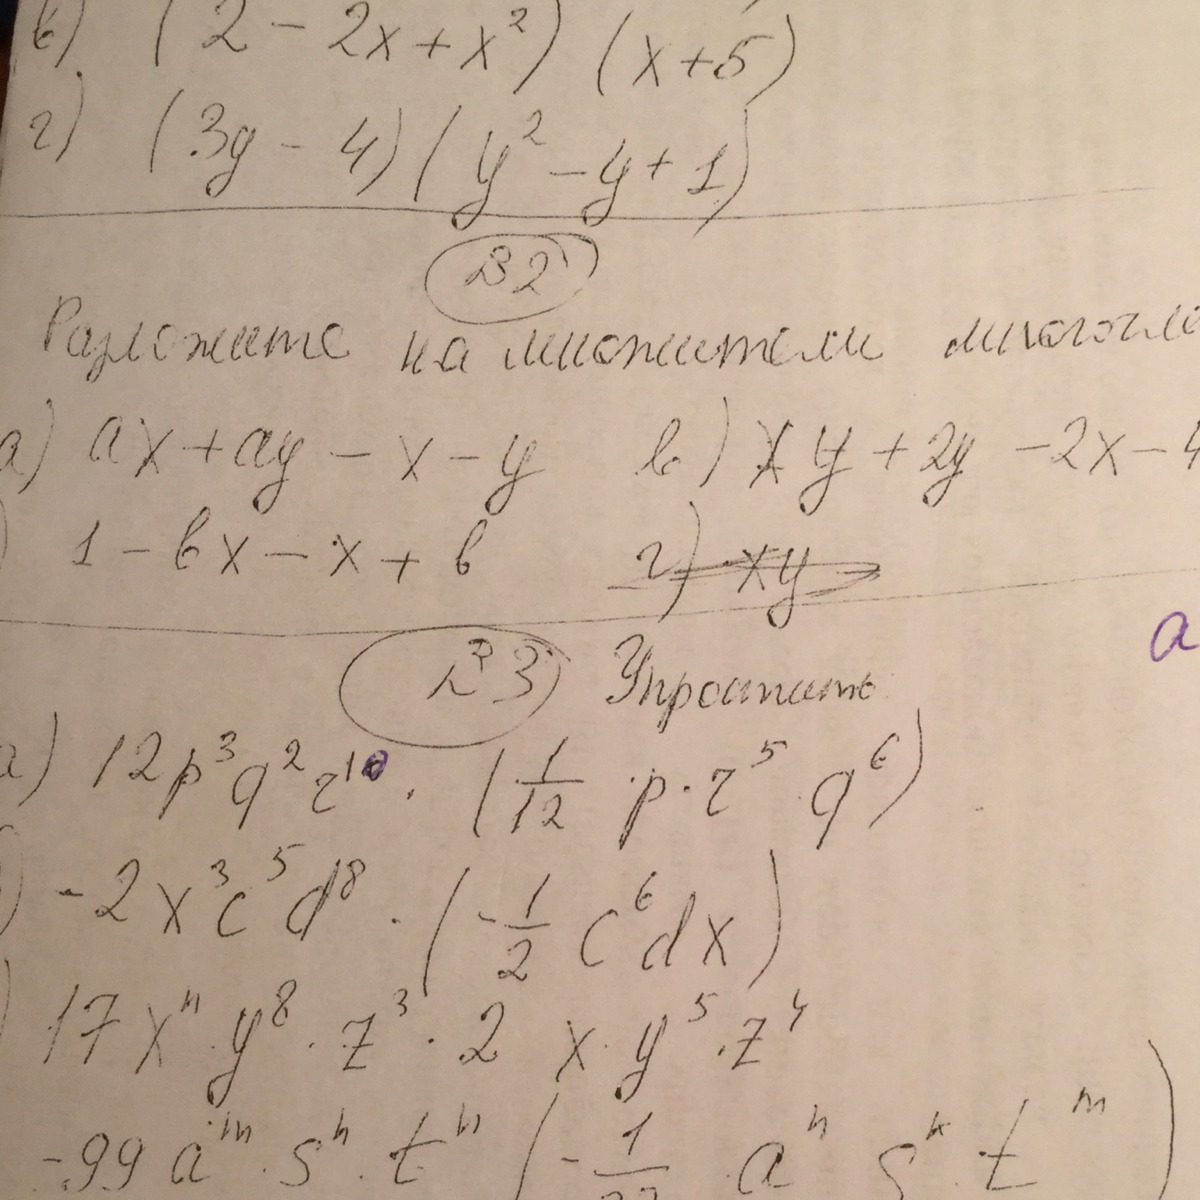 в) (2 - 2x + x²) (x+5)
г) (3y - 4) (y² - y + 1)
В2
Разложите на множители многочле
а) ax + ay - x - y в) xy + 2y - 2x - 4
) 1 - вx - x + в г) xy
a
№3 Упростить
а) 12p³q²z¹⁰ · (1/12 p · z⁵ q⁶)
) -2x³c⁵d¹⁸ · (-1/2 c⁶dx)
) 17xⁿ · y⁸ · z³ · 2 x · y⁵ · z⁴
-99 aᵐ · sⁿ · tⁿ (-1/ · aⁿ s t ᵐ)